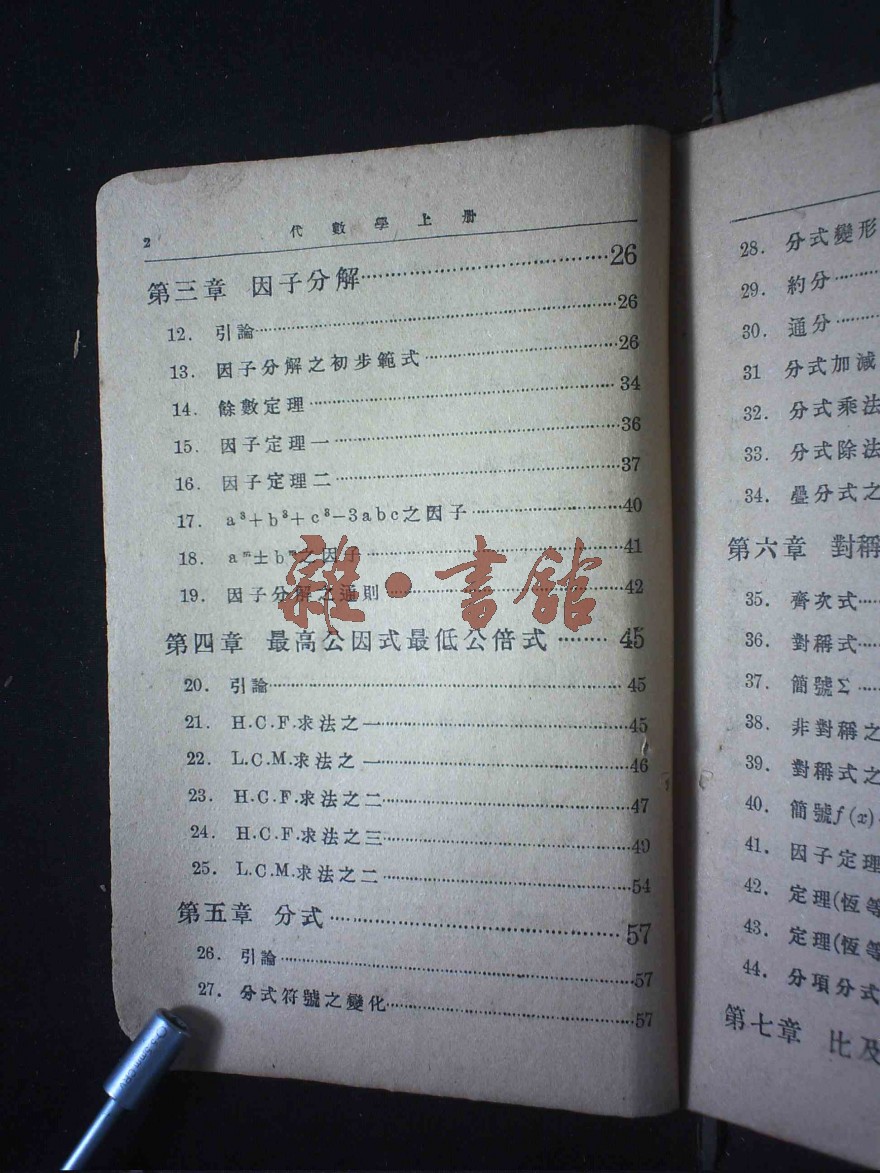 2 代數學上册
第三章 因子分解……26
12. 引論……26
13. 因子分解之初步範式……26
14. 餘數定理……34
15. 因子定理一……36
16. 因子定理二……37
17. a³+b³+c³−3abc之因子……40
18. aᵐ±bᵐ之因子……41
19. 因子分解之通則……42
第四章 最高公因式最低公倍式……45
20. 引論……45
21. H.C.F.求法之一……45
22. L.C.M.求法之一……46
23. H.C.F.求法之二……47
24. H.C.F.求法之三……49
25. L.C.M.求法之二……54
第五章 分式……57
26. 引論……57
27. 分式符號之變化……57
28. 分式變形
29. 約分……
30. 通分……
31 分式加減
32. 分式乘法
33. 分式除法
34. 疊分式之
第六章 對稱
35. 齊次式……
36. 對稱式……
37. 簡號Σ……
38. 非對稱之
39. 對稱式之
40. 簡號f(x)
41. 因子定理
42. 定理(恆等
43. 定理(恆等
44. 分項分式
第七章 比及
雜·書館